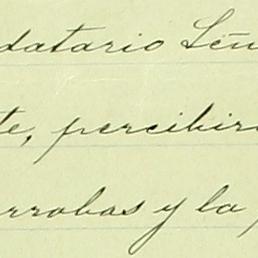 datario Señ
te, percibir
arrobas y la